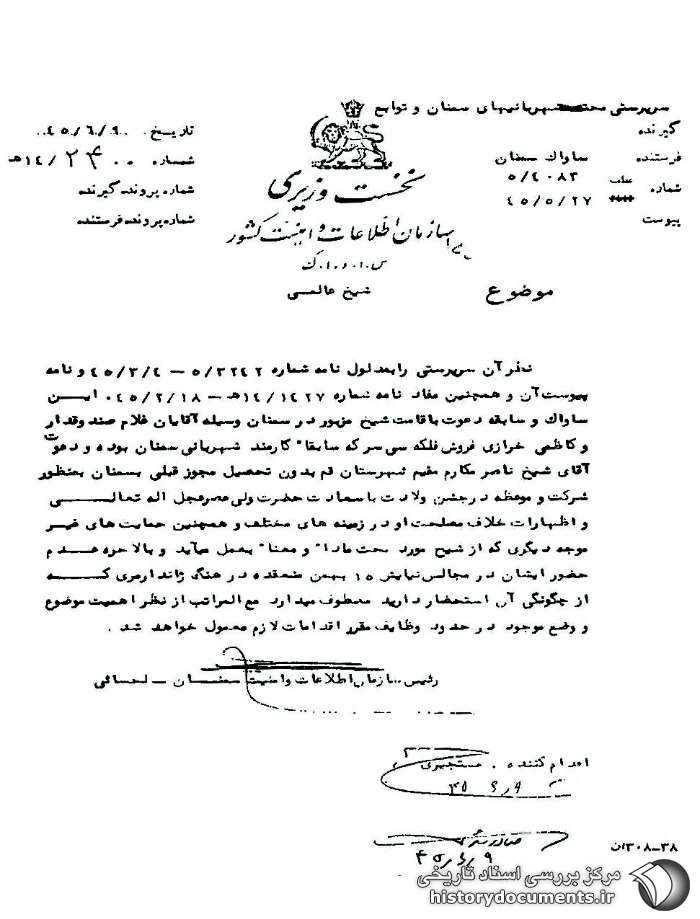 سرپرستی محترم شهربانیهای سمنان و توابع
گیرنده
فرستنده ساواك سمنان
شماره ۵/۴۰۸۳
عطف ۴۵/۵/۲۷
پیوست
نخست وزیری
سازمان اطلاعات و امنیت کشور
س.ا.و.ا.ک
تاریخ ۴۵/۶/۹۰
شماره ۱۴/۲۴۰۰هـ
شماره پرونده گیرنده
شماره پرونده فرستنده
موضوع شیخ عالمی
نظر آن سرپرستی را بمدلول نامه شماره ۵/۳۲۴۲ – ۴۵/۳/۴ و نامه
پیوست آن و همچنین مفاد نامه شماره ۱۴/۱۴۲۷هـ – ۴۵/۲/۱۸۰ ایـن
ساواك و سابقه دعوت با قامت شیخ مزبور در سمنان وسیله آقایان غلام صندوقدار
و کاظمی خرازی فروش فلکه سی سر که سابقا" کارمند شهربانی سمنان بوده و دعوت
آقای شیخ ناصر مکارم مقیم شهرستان قم بدون تحصیل مجوز قبلی بسمنان بمنظور
شرکت و موعظه در جشن ولادت با سعادت حضرت ولی عصر عجل اله تعالـــی
و اظهارات خلاف مصلحت او در زمینه های مختلف و همچنین حمایت های غیـر
موجه دیگری که از شیخ مورد بحث مادا" و معنا" بعمل میآید و بالاخره عـدم
حضور ایشان در مجالس نیایش ۱۵ بهمن منعقده در هنگ ژاندارمری کـــه
از چگونگی آن استحضار دارید معطوف میدارد مع المراتب از نظر اهمیت موضوع
و وضع موجود در حدود وظایف مقرر اقدامات لازم معمول خواهد شد .
رئیس سازمان اطلاعات و امنیت سمنـــان – لحسائی
اقدام کننده . مستجیری
۴۵/۶/۹
صادر شد
۴۵/۶/۹
۳۰۸–۳۸ن
مرکز بررسی اسناد تاریخی
historydocuments.ir